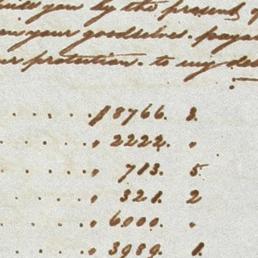 you by the present
your goodness. payw
protection. to my de
18766. 8.
" 2222. "
" 713. 5
" 321. 2
" 6000. "
" 3989. 1.